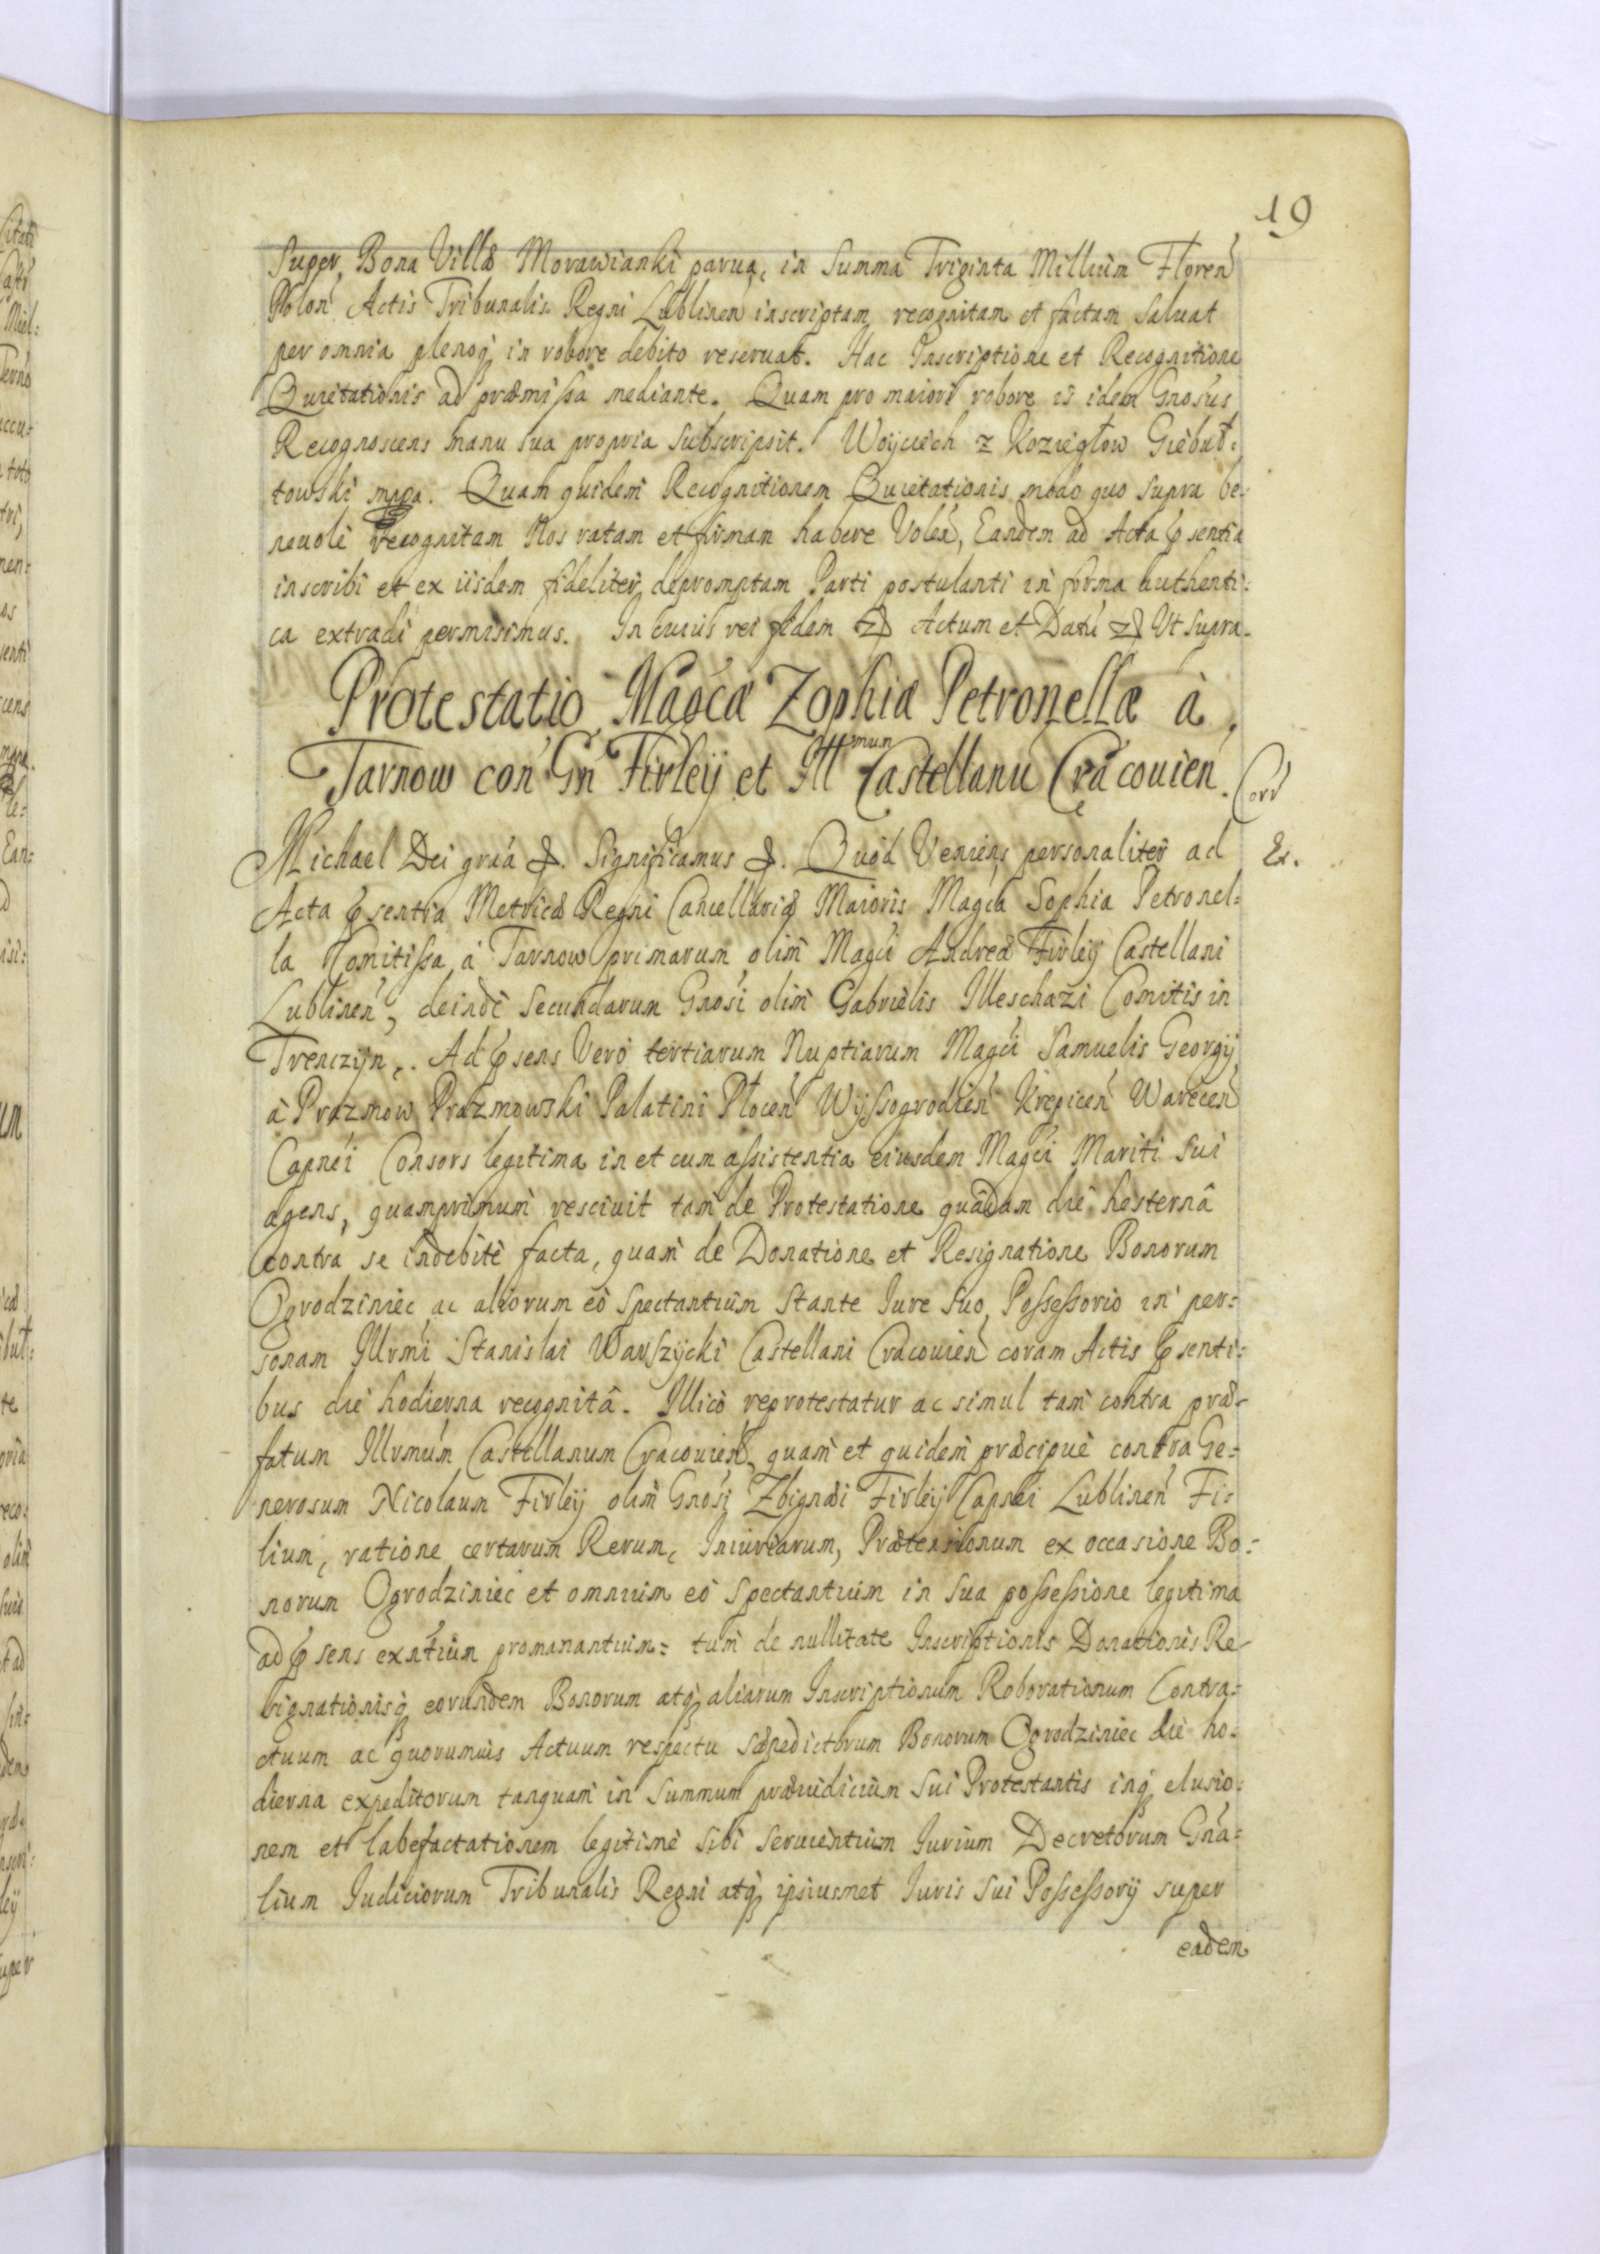 19
Super Bona Villæ Morawianki parua, in Summa Triginta Millium Floren
Polon Actis Tribunalis Regni Lublinen inscriptam recognitam et factam saluat
per omnia plenoq in robore debito reseruat. Hac Inscriptione et Recognitione
Quietationis ad præmissa mediante. Quam pro maiori robore is idem Gnosus
Recognoscens manu sua propria subscripsit. Woyciech z Koziegłow Giebuł:
towski mppa. Quam quidem Recognitionem Quietationis modo quo supra be:
neuole recognitam Nos ratam et firmam habere Volen, Eandem ad Acta psentia
inscribi et ex iisdem fideliter depromptam Parti postulanti in forma authenti:
ca extradi permisimus. In cuius rei fidem & Actum et Datu & Ut supra.
Protestatio Magcæ Zophiæ Petronellæ à
Tarnow con Gn Firleij et Illmum Castellanu Cracouien.
Corr
Ex.
Michael Dei graa &. Significamus &. Quod Veniens personaliter ad
Acta psentia Metricæ Regni Cancellariæ Maioris Magca Sophia Petronel:
la Comitissa à Tarnow primarum olim Magci Andreæ Firleij Castellani
Lublinen, deinde secundarum Gnosi olim Gabrielis Illeschazi Comitis in
Trenczijn,. Ad psens Vero tertiarum Nuptiarum Magci Samuelis Georgij
à Prazmow Prazmowski Palatini Płocen Wyssogrodien Krepicen Warecen
Capnei Consors legitima in et cum assistentia eiusdem Magci Mariti sui
agens, quamprimum resciuit tam de Protestatione quâdam die hesternâ
contra se indebitè facta, quam de Donatione et Resignatione Bonorum
Ogrodziniec ac aliorum eò spectantium stante Iure suo Possessorio in per:
sonam Illrmi Stanislai Warszycki Castellani Cracouien coram Actis psenti:
bus die hodierna recognitâ. Illicò reprotestatur ac simul tam contra præ:
fatum Illrmum Castellanum Cracouien, quam et quidem præcipuè contra Ge:
nerosum Nicolaum Firleij olim Gnosi Zbignæi Firleij Capnei Lublinen Fi:
lium, ratione certarum Rerum, Iniuriarum, Prætensionum ex occasione Bo:
norum Ogrodziniec et omnium eò spectantium in sua possessione legitima
ad psens exntium promanantium: tum de nullitate Inscriptionis Donationis Re
signationisq eorundem Bonorum atq aliarum Inscriptionum Roborationum Contra:
ctuum ac quorumuis Actuum respectu sæpedictorum Bonorum Ogrodziniec die ho:
dierna expeditorum tanquam in summum præiudicium sui Protestantis inq elusio:
nem et labefactationem legitimè sibi seruientium Iurium Decretorum Gna:
lium Iudiciorum Tribunalis Regni atq ipsiusmet Iuris sui Possessorij super
eadem